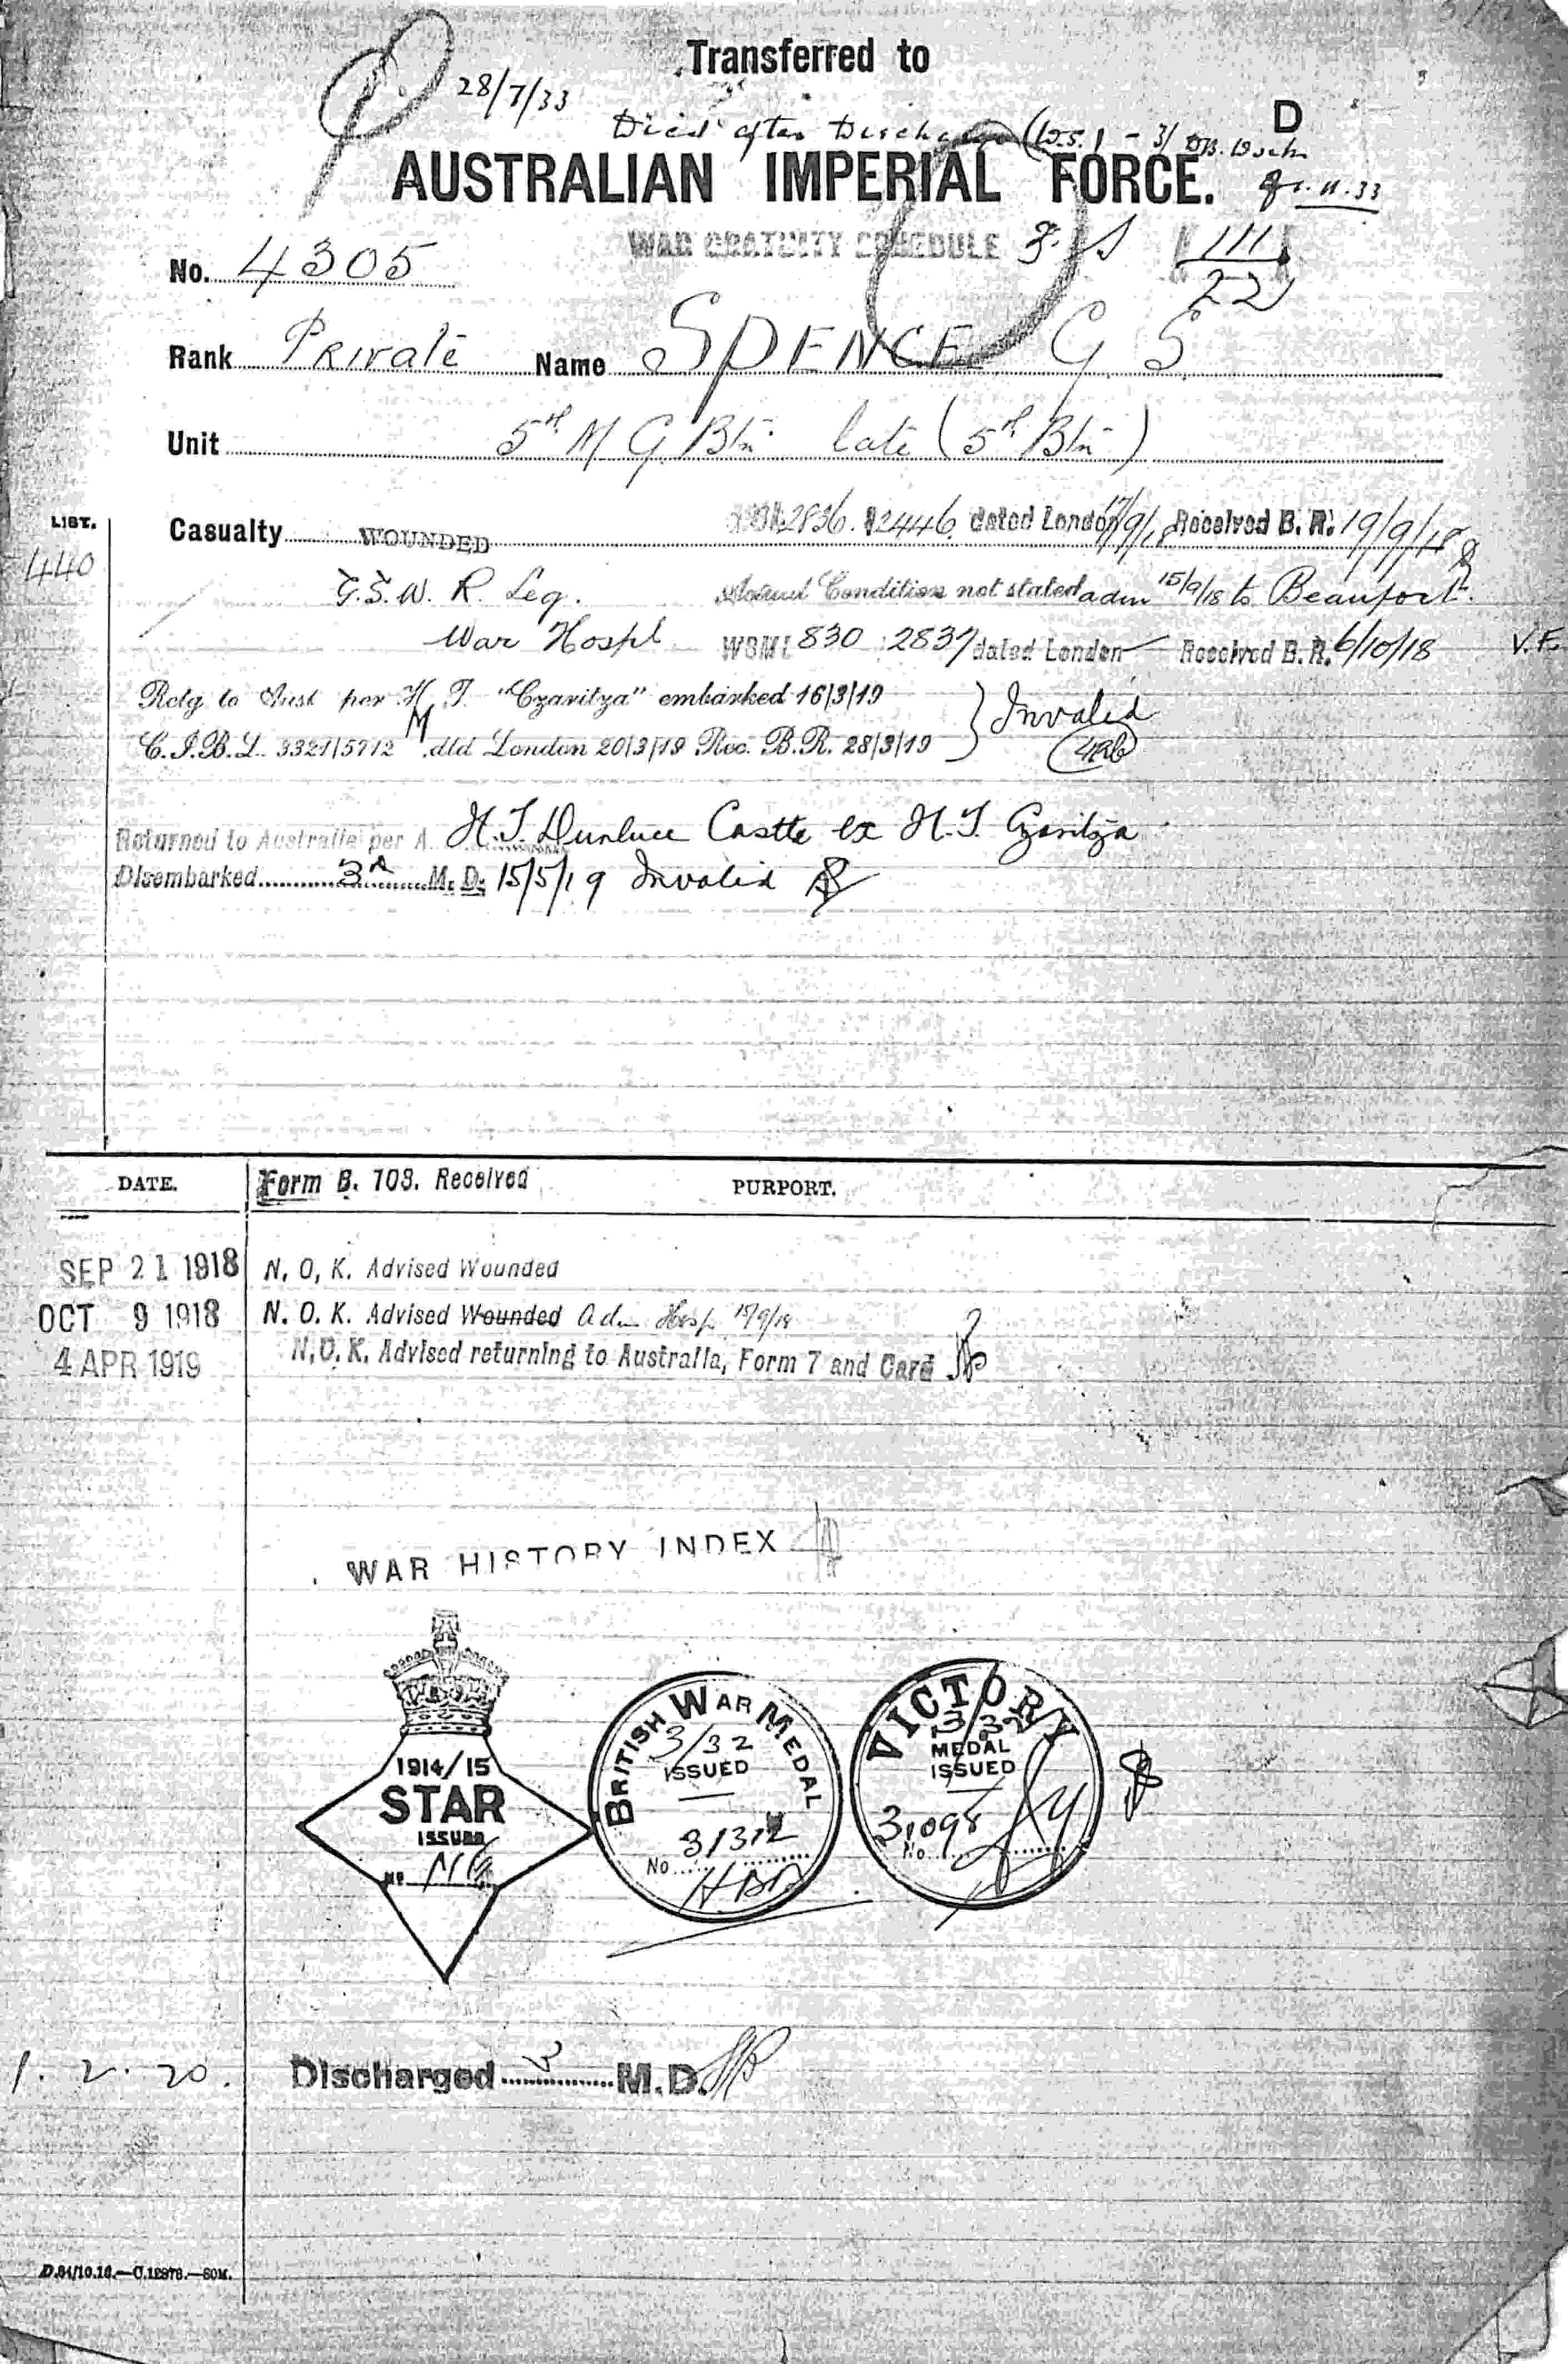 Transferred to
28/7/33
Died after Discharge
D
AUSTRALIAN IMPERIAL FORCE.
WAR GRATUITY SCHEDULE
111
22
No. 4305
Rank Private Name SPENCE G S
Unit 5th M G Btn late (5th Btn)
LIST.
440
Casualty WOUNDED 2836 12446 dated London 17/9/18 Received B. R. 19/9/18
G.S.W. R. Leg. Condition not stated adm 15/9/18 to Beaufort
War Hospl WSML 830 2837 dated London Received B.R. 6/10/18 V.F.
Retg to Aust per H.T. "Czaritza" embarked 16/3/19
Invalid
C.I.B.L. 3321/5712 M dtd London 20/3/19 Rec. B.R. 28/3/19
Returned to Australia per H.T. Dunluce Castle ex H.T. Czaritza
Disembarked 3rd M. D. 15/5/19 Invalid
DATE. Form B. 103. Received PURPORT.
SEP 21 1918 N. O, K. Advised Wounded
OCT 9 1918 N. O. K. Advised Wounded adm Hosp. 15/9/18
4 APR 1919 N.O.K. Advised returning to Australia, Form 7 and Card
WAR HISTORY INDEX
1914/15
STAR
ISSUED
No
BRITISH WAR MEDAL
3/32
ISSUED
31312
No
VICTORY
3/32
MEDAL
ISSUED
31098
No.
1. 2. 20. Discharged 3 M.D.
D.84/10.16.—C.12878.—50M.